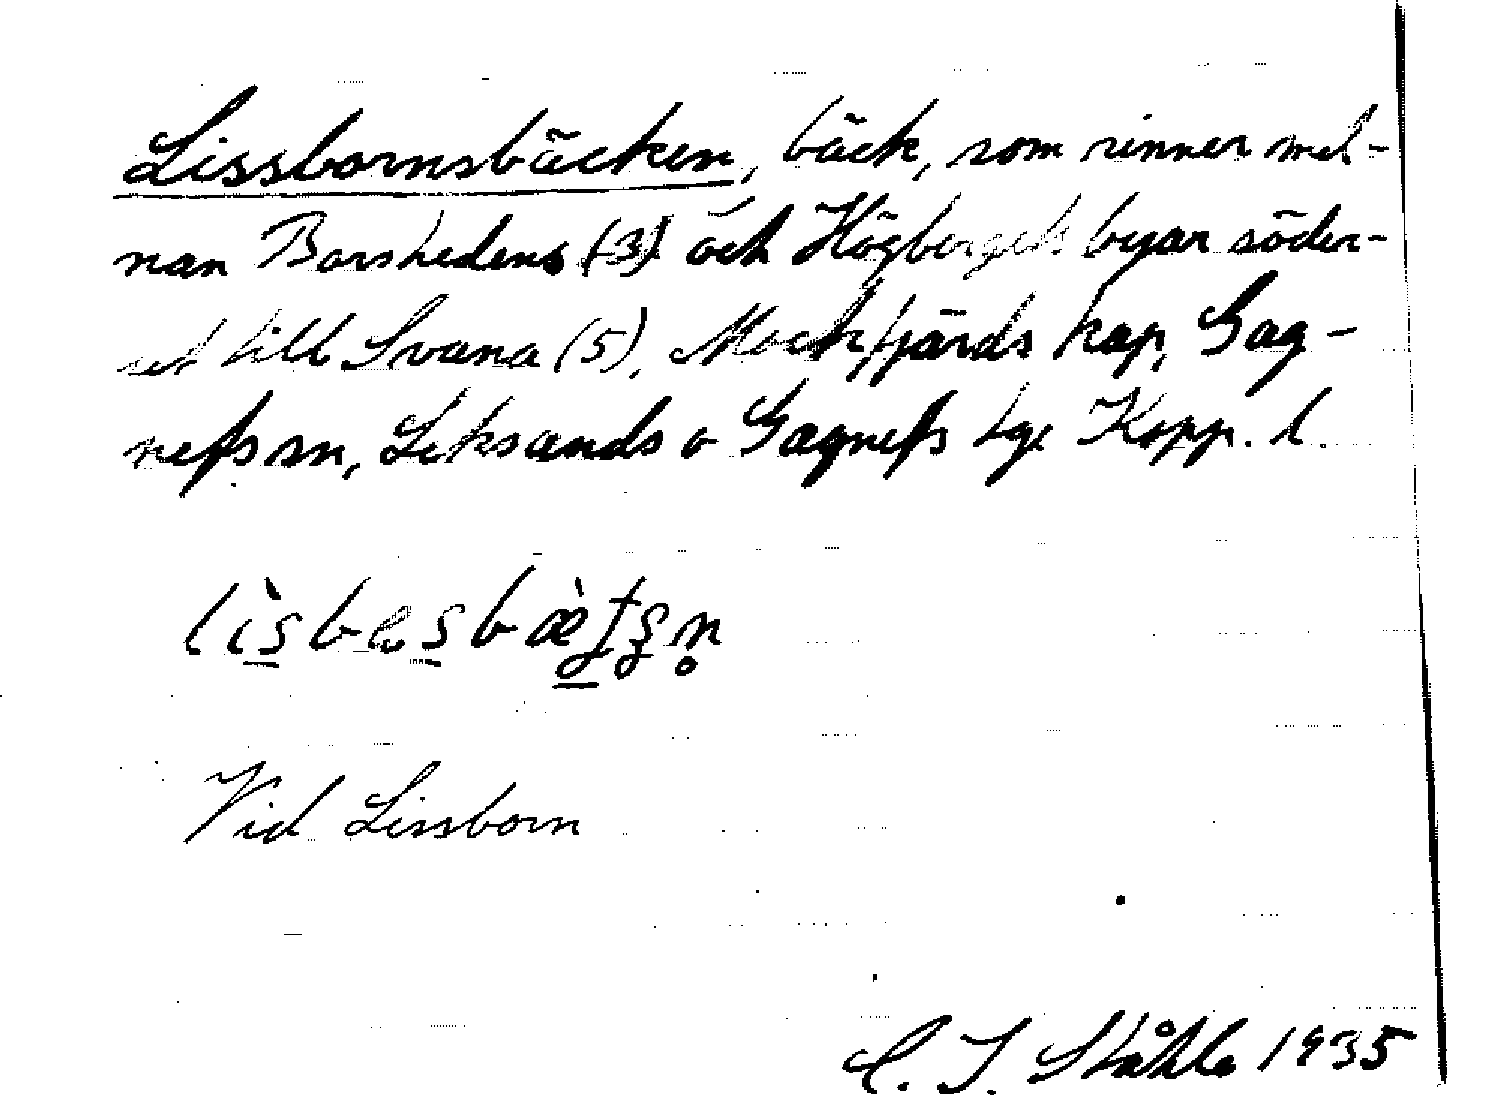 Lissbornsbäcken, bäck, som rinner mel-
nan Borshedens (3) och Högbergets byar söder-
ut till Svana (5), Mockfjärds kap, Gag-
nefs sn, Leksands o Gagnefs tgl Kopp. l.
Vid Lissborn
C. I. Ståhle 1935